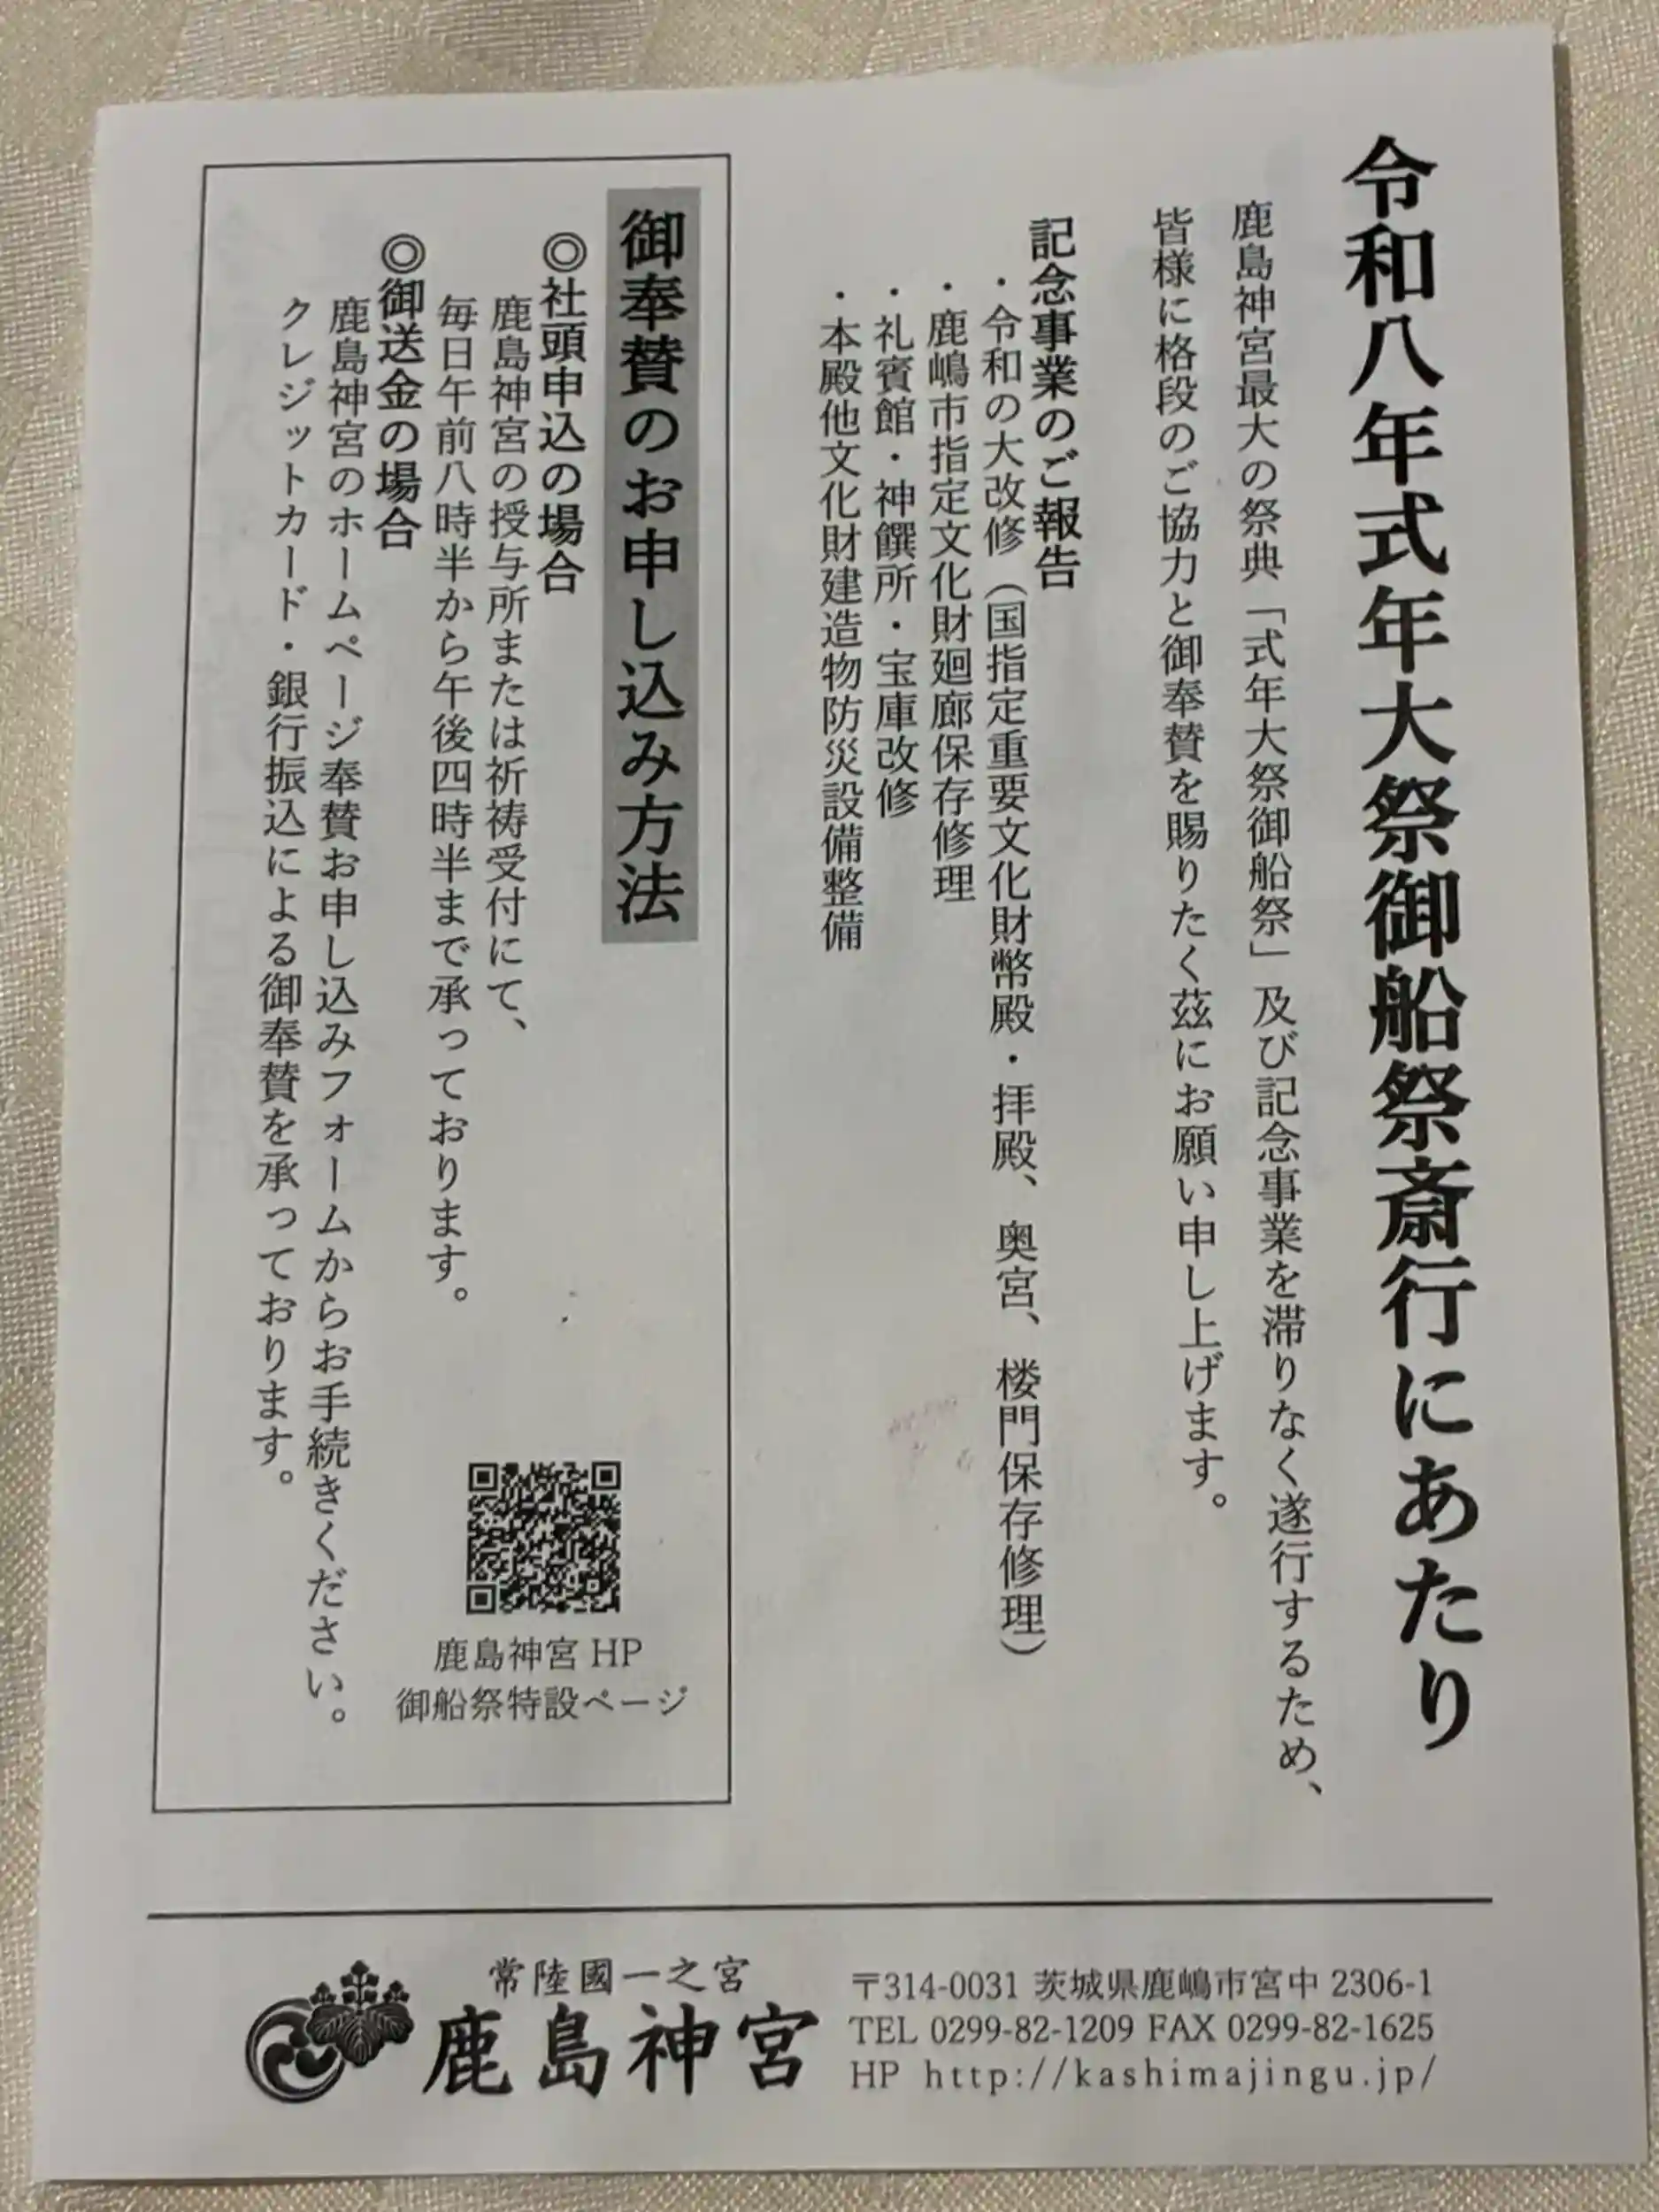 令和八年式年大祭御船祭斎行にあたり
鹿島神宮最大の祭典「式年大祭御船祭」及び記念事業を滞りなく遂行するため、
皆様に格段のご協力と御奉賛を賜りたく茲にお願い申し上げます。
記念事業のご報告
・令和の大改修（国指定重要文化財幣殿・拝殿、奥宮、楼門保存修理）
・鹿嶋市指定文化財廻廊保存修理
・礼賓館・神饌所・宝庫改修
・本殿他文化財建造物防災設備整備
御奉賛のお申し込み方法
◎社頭申込の場合
鹿島神宮の授与所または祈祷受付にて、
毎日午前八時半から午後四時半まで承っております。
◎御送金の場合
鹿島神宮のホームページ奉賛お申し込みフォームからお手続きください。
クレジットカード・銀行振込による御奉賛を承っております。
鹿島神宮 HP
御船祭特設ページ
常陸國一之宮
鹿島神宮
〒314-0031 茨城県鹿嶋市宮中 2306-1
TEL 0299-82-1209 FAX 0299-82-1625
HP http://kashimajingu.jp/